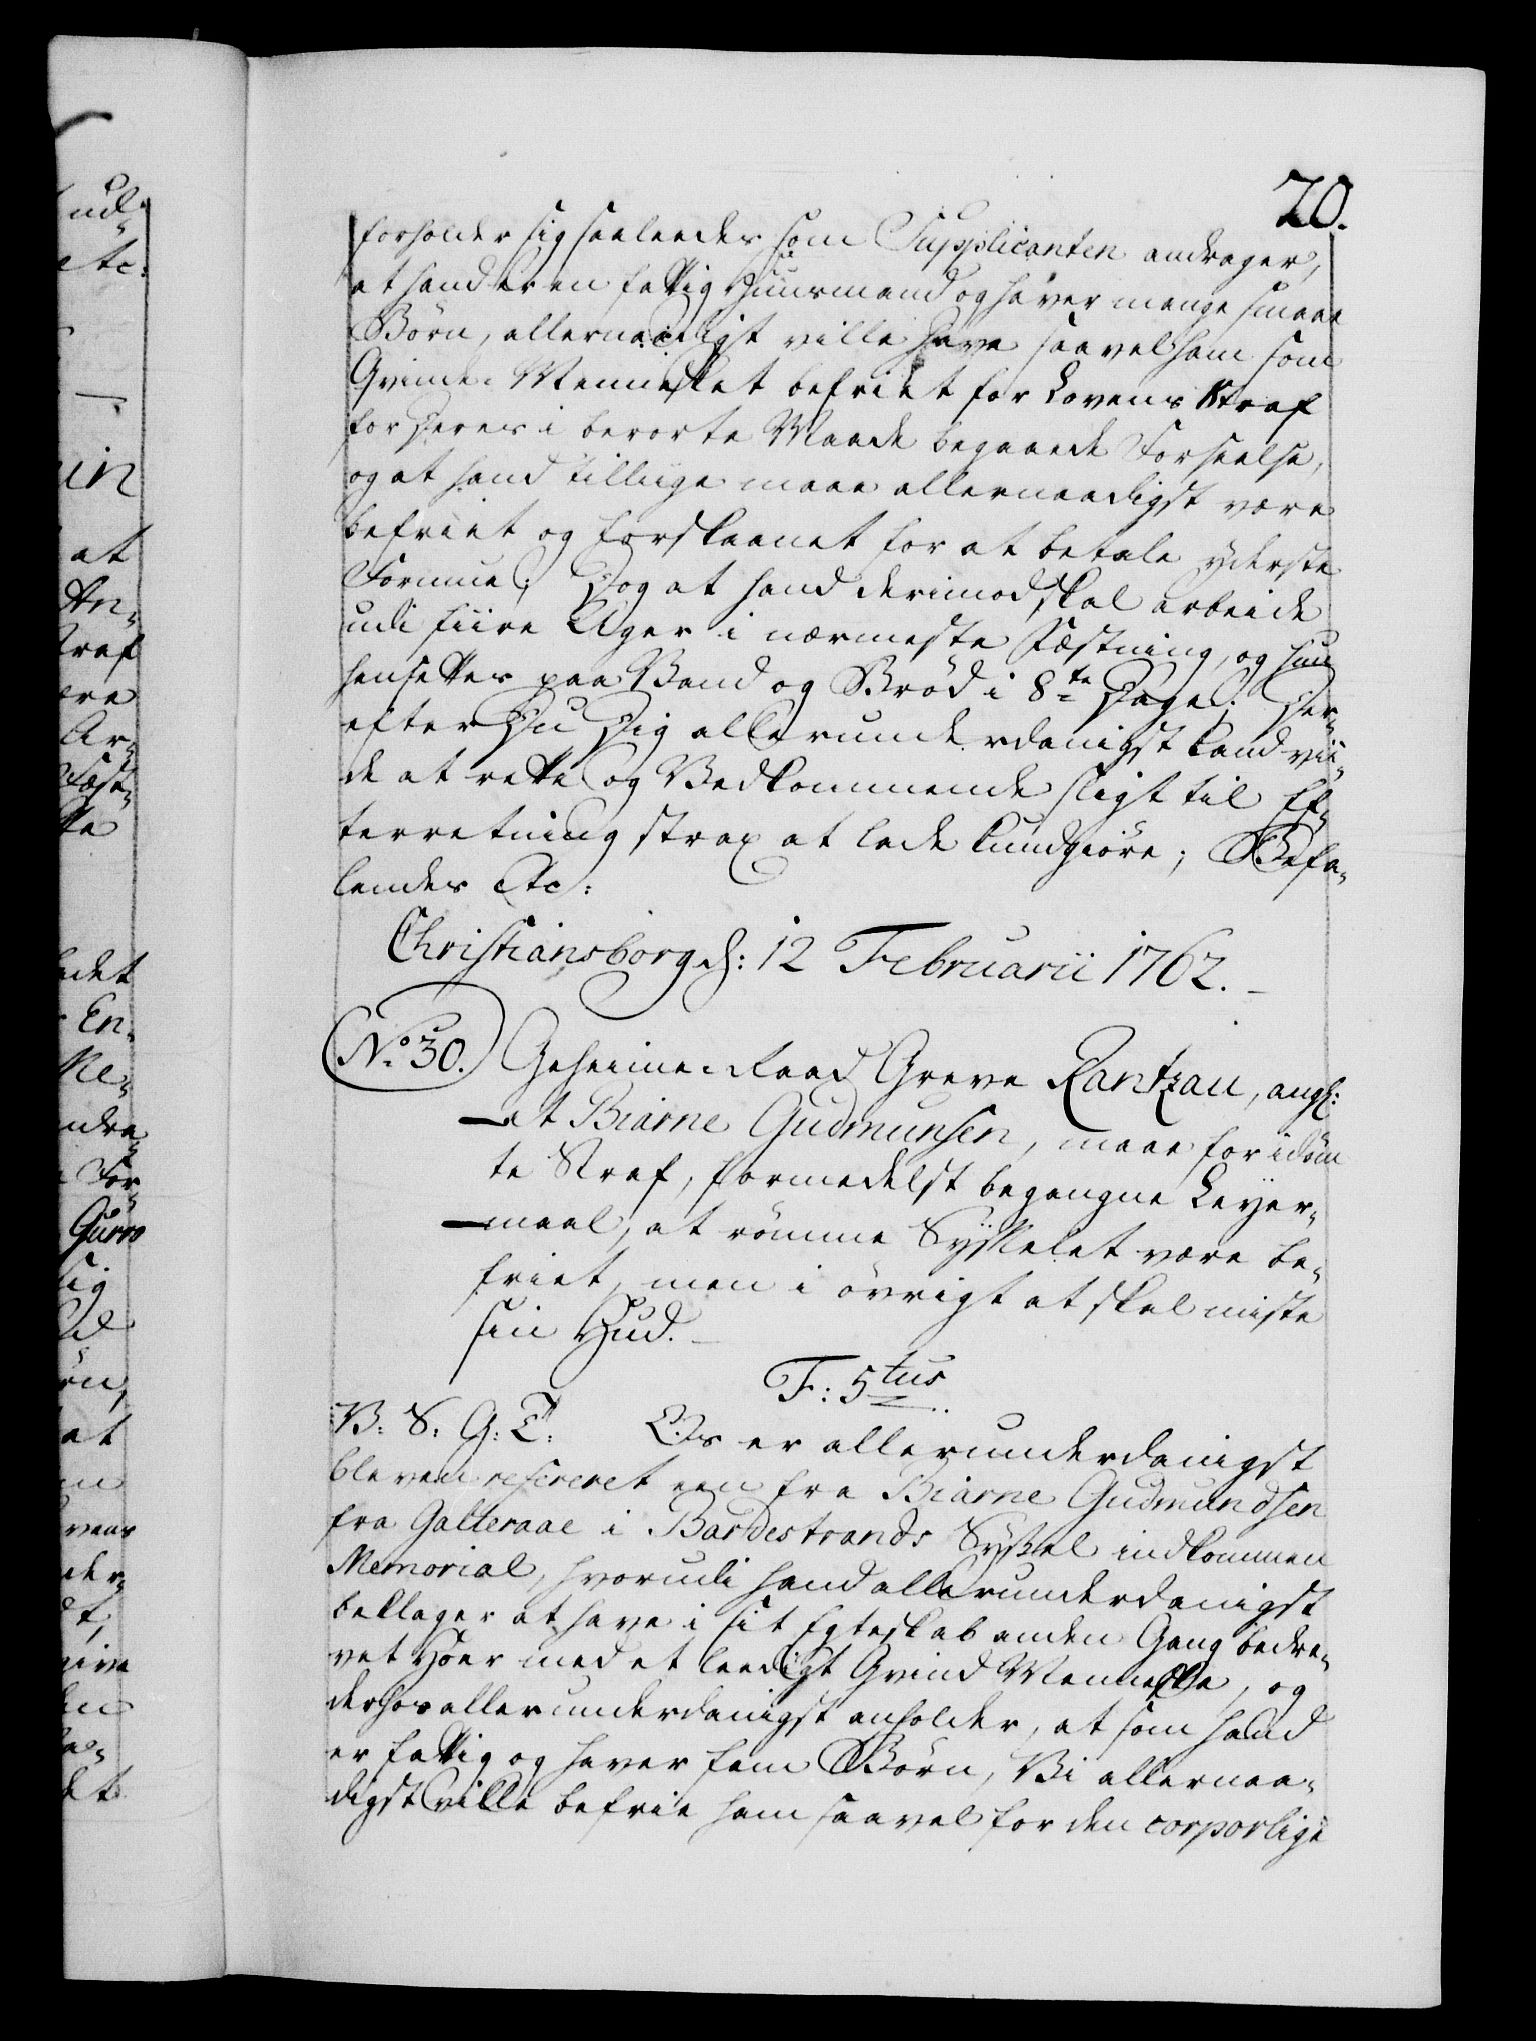 20.
forholder sig saaledes som Supplicanten andrager,
at hand er en fattig Huusmand og haver mange smaae
Börn, allernaadigst ville have saavel ham som
Qvinde-Mennesket befriet for Lovens Straf
for deres i berörte Maade begaaede Forseelse,
og at hand tilliige maae allernaadigst være
befriet og forskaanet for at betale yderste
Formue; Dog at hand derimod skal arbeide
udi fiire Uger i nærmeste Fæstning, og hun
hensettes paa Vand og Bröd i 8te Dage; Der-
efter Du Dig allerunderdanigst kand vii-
de at rette og Vedkommende sligt til Ef-
terretning strax at lade kundgiöre; Befa-
lendes etc:
Christiansborg d: 12 Februarii 1762.
No 30. Geheime-Raad Greve Rantzau, angl:
at Biarne Gudmunsen, maae for idöm
te Straf, formedelst begangne Leyer-
maal, at römme Sysselet være be-
friet, men i övrigt at skal miste
sin Hud.
F: 5tus
V: S: G: T: Os er allerunderdanigst
bleven refereret een fra Biarne Gudmundsen
fra Galteraae i Bardestrands Syssel indkommen
Memorial, hvorudi hand allerunderdanigst
beklager at have i sit Egteskab anden Gang bedre-
vet Hoer med et leedigt Qvind Menneske, og
derhos allerunderdanigst anholder, at som hand
er fattig og haver fem Börn, Vi allernaa-
digst ville befrie ham saavel for den corporlige